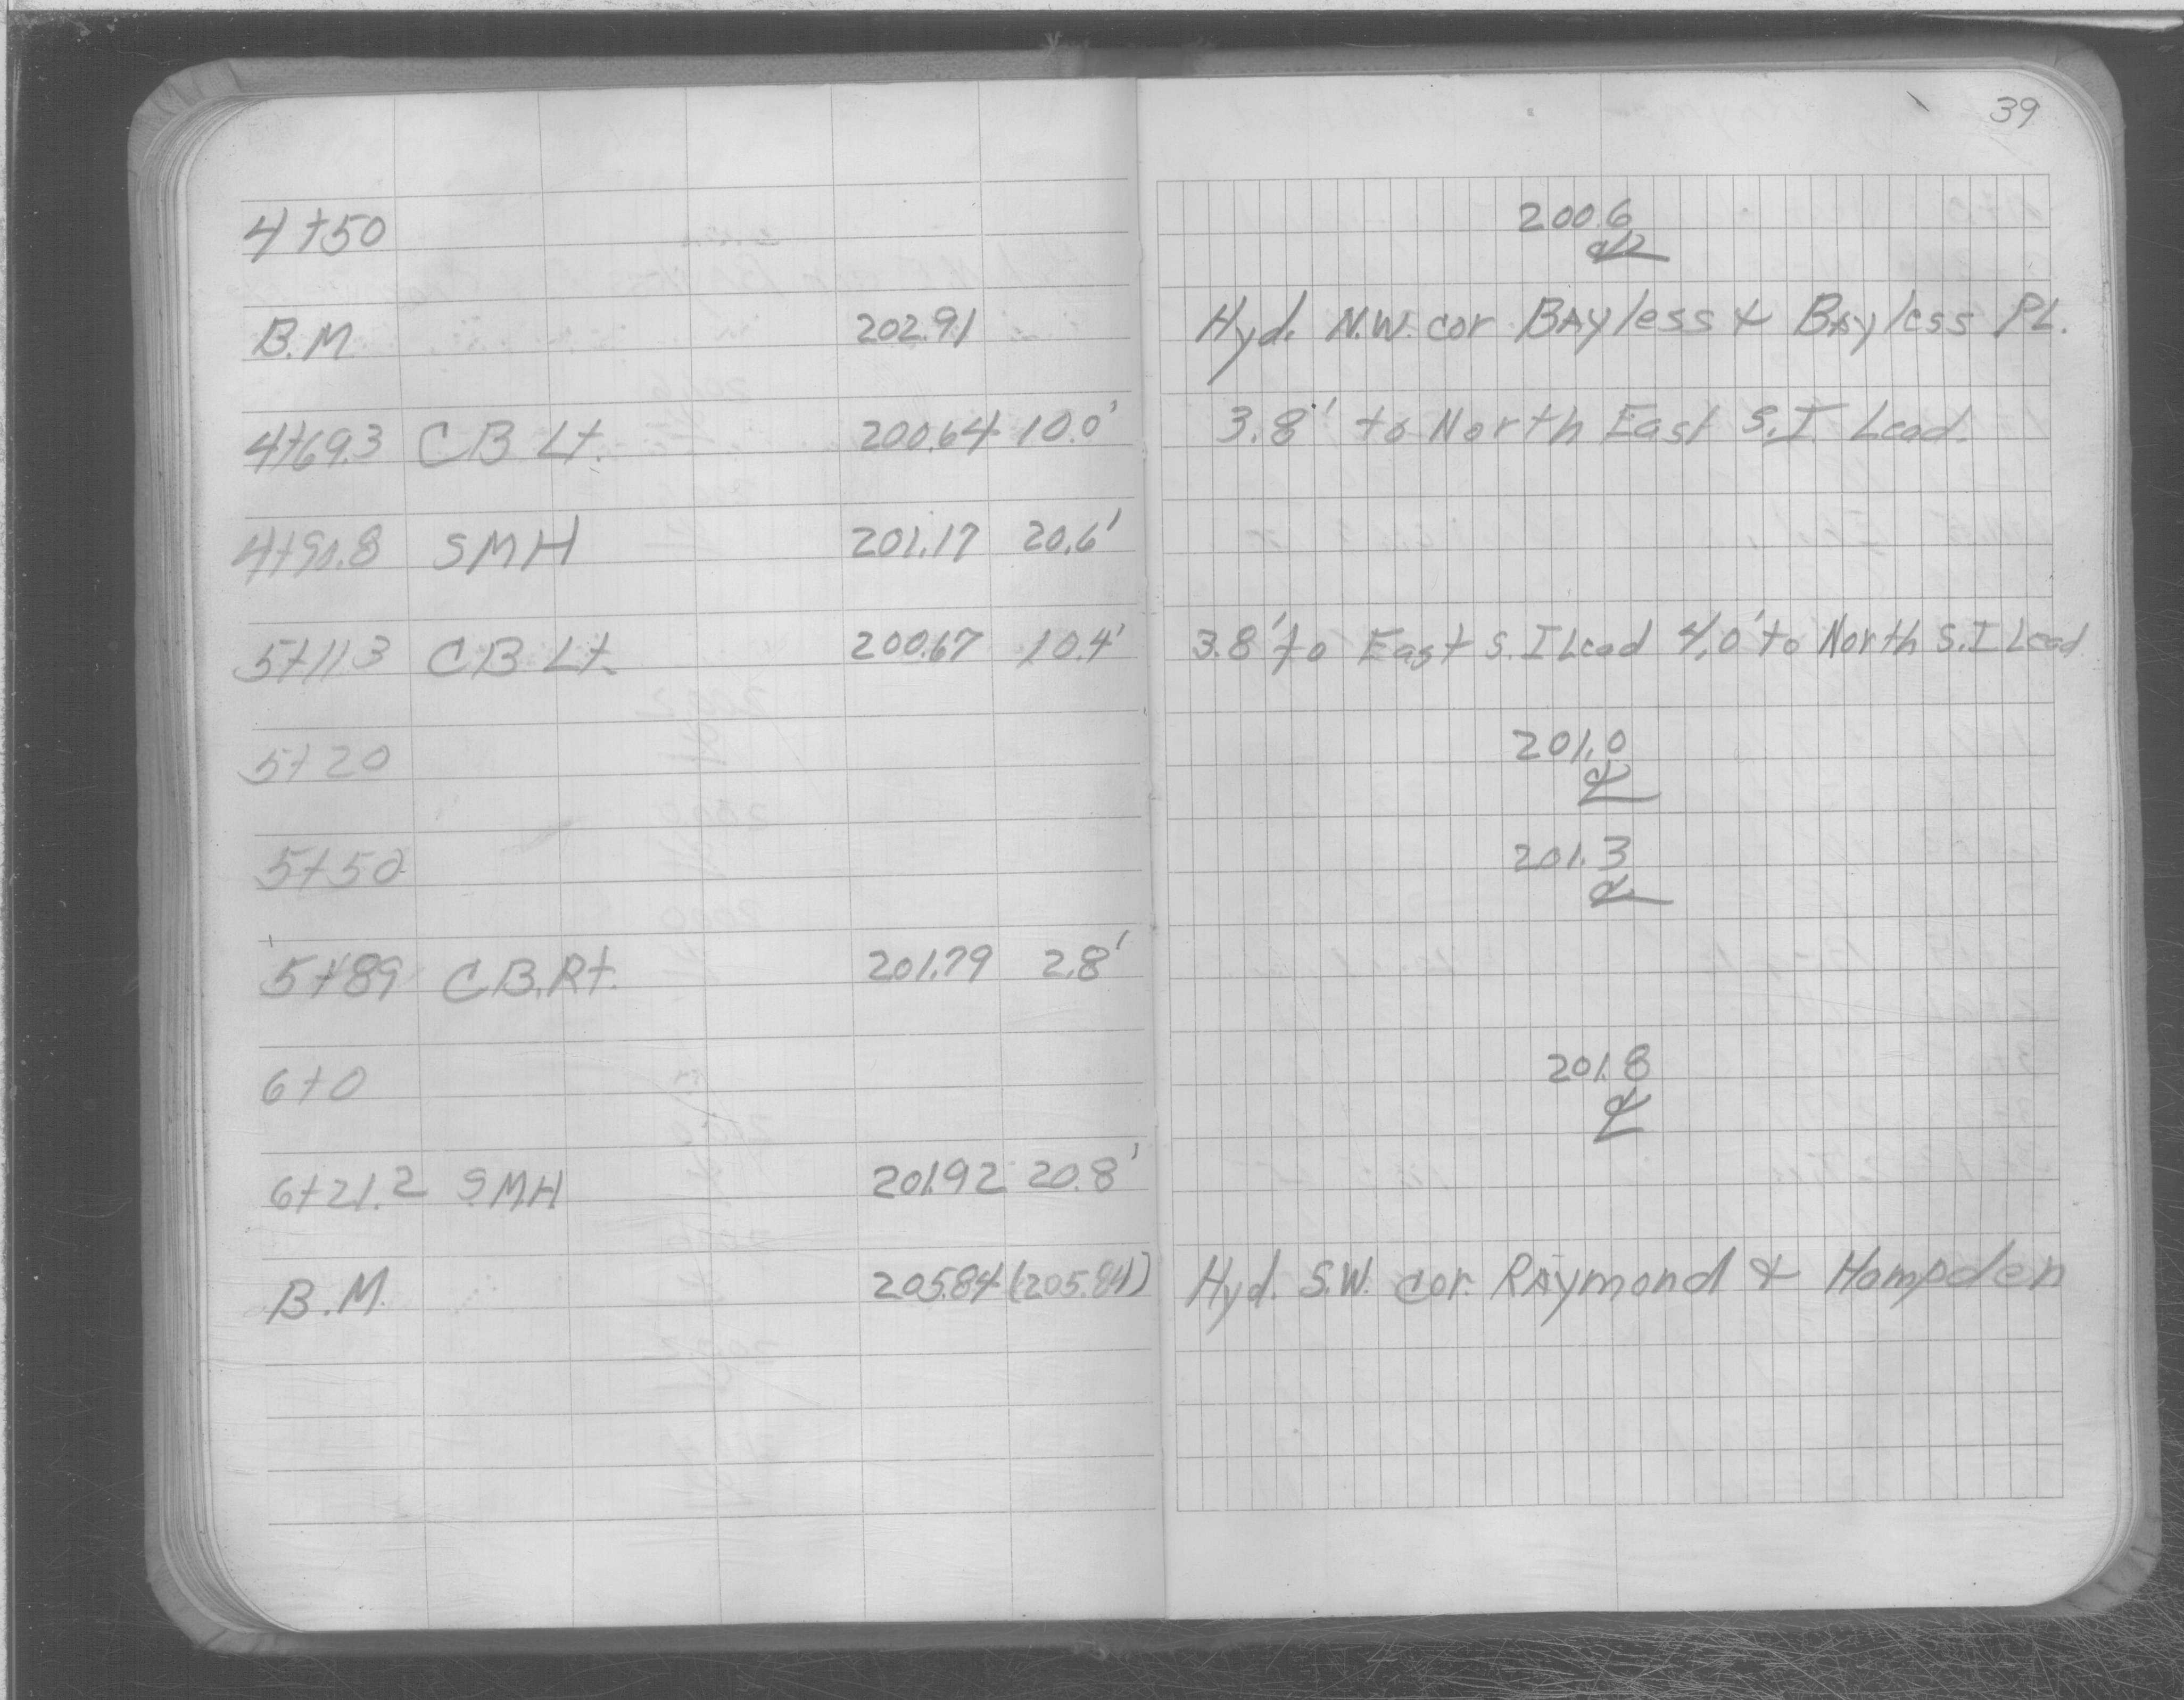 39
4+50 200.6
℄
B.M 202.91 Hyd. N.W. cor Bayless & Bayless PL.
4+69.3 CB Lt. 200.64 10.0' 3.8' to North East S.I. Lead.
SMH 201.17 20.6'
5+11.3 CB Lt. 200.67 10.4' 3.8' to East S.I Lead 4.0' to North S.I Lead
5+20 201.0
℄
5+50 201.3
℄
5+89 C.B.Rt. 201.79 2.8'
6+0 201.8
℄
6+21.2 SMH 201.92 20.8'
B.M. 205.84 (205.84) Hyd. S.W. cor. Raymond & Hampden